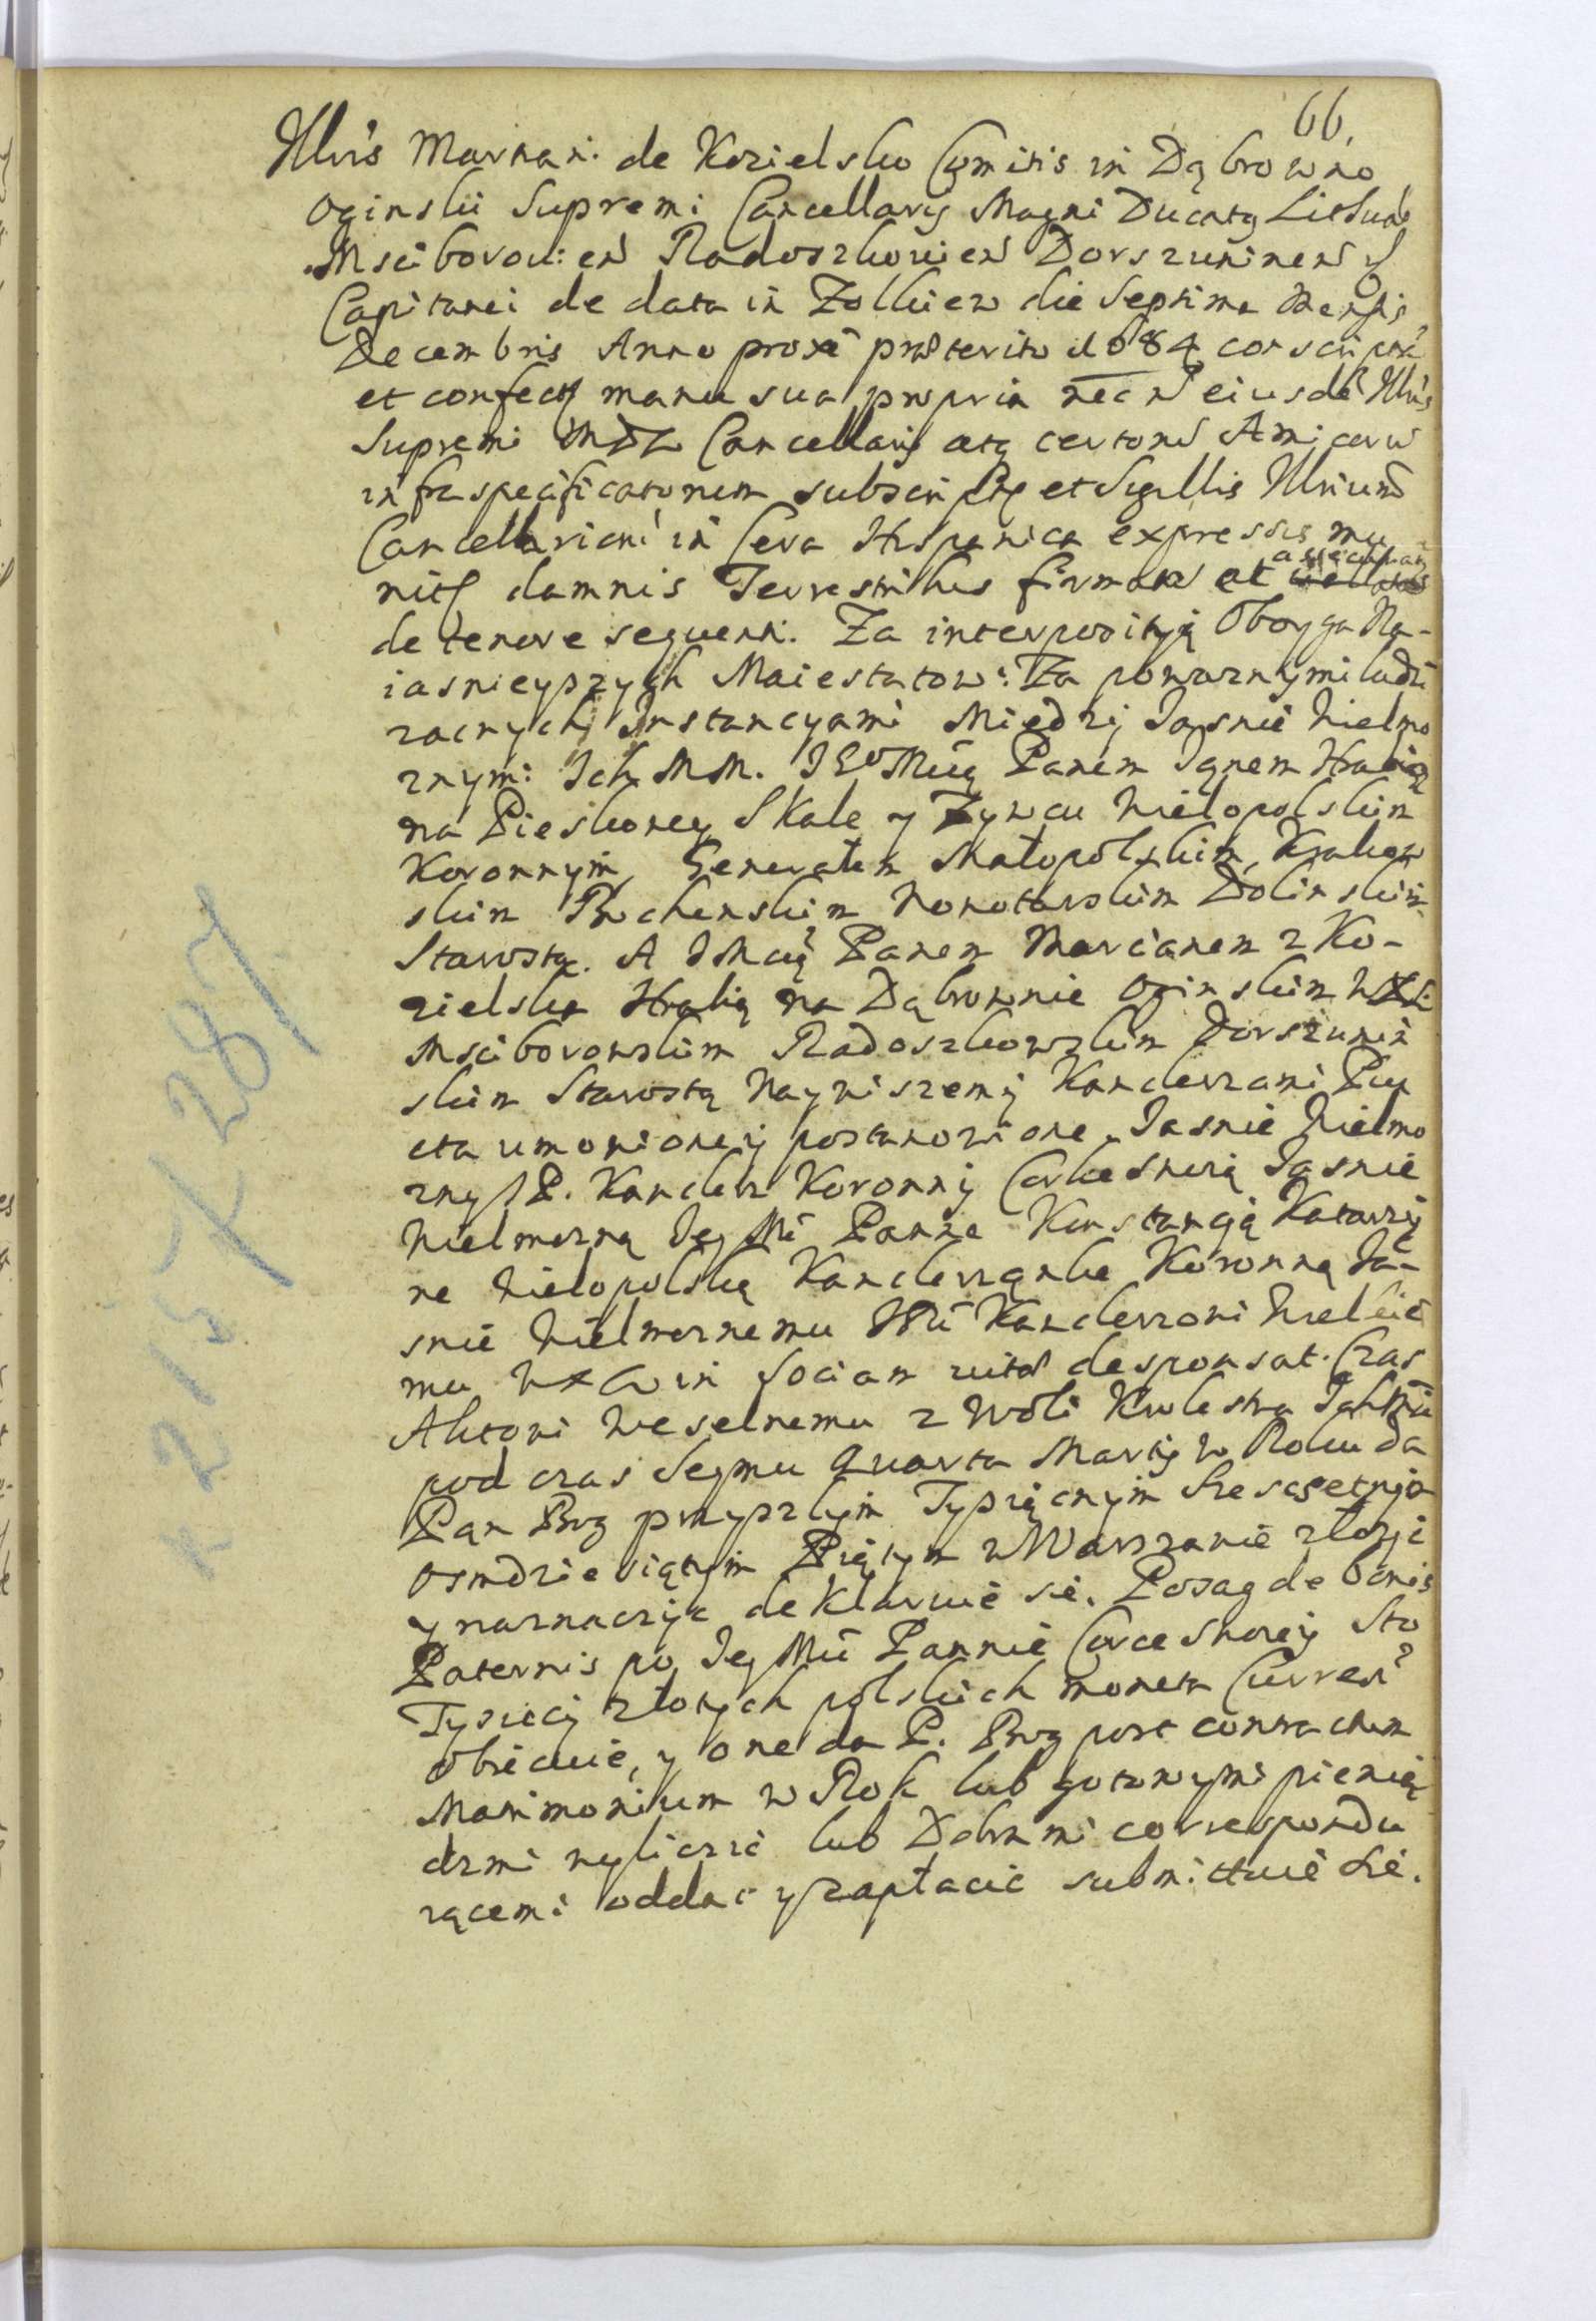 66.
Illris Martiani de Kozielsko Comitis in Dąbrowno
Oginskii Supremi Cancellarij Magni Ducatq Lithuae
Mscibovou: en Radoszkovien Dorszuninen
Capitanei de data in Zolkiew die Septima Mensis
Decembris Anno proxe praeterito 1684 conscript
et confect manu sua propria nec n eiusde Illris
Supremi MDL Cancellarij atq certoru Amicoru
infraspecificatorum subscript et Sigillis Illrium
Cancellarioru in Cera Hispanica expressis mu
nit damnis Terrestribus firmat et
de tenore sequenti. Za interpositią Oboyga Na-
iasnieyszych Maiestatow: Za powaznymi ludzi
zacnych Instancyami Między Jasnie Wielmo
znymi Ich MM. JEo Mcią Panem Janem Hrabią
na Pieskowey Skale y Zywcu Wielopolskim
Koronnym, Generałem Małopolskim, Krakow
skim Bochenskim Nowotarskim Dolinskim
Starostą. A JMcią Panem Marcianem z Ko-
zielska Hrabią na Dąbrownie Oginskim WXL
Mscibowowskim Radoszkowskim Dorszunin
skim Starostą Naywiszemi Kanclerzami Pun
cta umowioney postanowione. Jasnie Wielmo
zny P. Kanclerz Koronny Corke Swoią Jasnie
Wielmozną Jey Mć Panne Konstancją Katarzy
ne Wielopolską Kanclerzanke Koronną Ja-
snie Wielmoznemu JMci Kanclerzowi Wielkie
mu WXL in Sociam vitae desponsat. Czas
Aktowi Weselnemu z Woli Krolestwa Ich Mci
pod czas Seymu Quarta Martij w Roku da
Pan Bog przyszlym Tysiącnym Szescsetnym
osmdziesiątym Piątym w Warszawie złozyc
y naznaczyc deklaruie sie. Posag de bonis
Paternis po Jey Mci Pannie Corce Swoiey Sto
Tysiecy złotych polskich moneta Curren
obiecuie, y one da P. Bog post contractum
Matrimonium w Rok lub gotowymi pienią
dzmi wyliczic lub Dobrami correspondu
iącemi oddac y zapłacic submittuie sie.
K 215/287